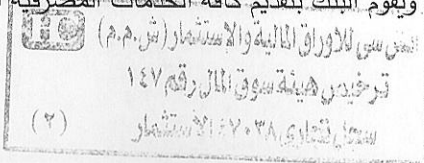 ويقوم البنك بتقديم كافة الخدمات المصرفية
سى للاوراق المالية والإستثمار (ش.م.م)
ترخيص هيئة سوق المال رقم ١٤٧
سجل تجارى ٤٧٠٣٨ الاستثمار
(٢)